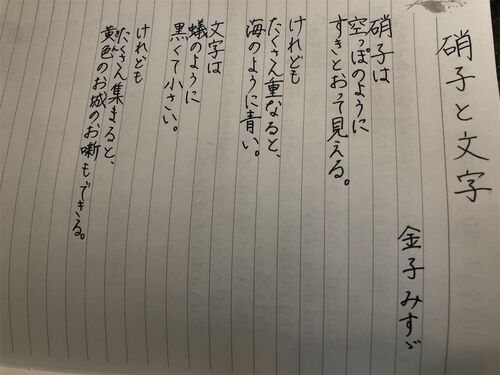 硝子と文字
金子みすゞ
硝子は
空っぽのように
すきとおって見える。
けれども
たくさん重なると、
海のように青い。
文字は
蟻のように
黒くて小さい。
けれども
たくさん集まると、
黄金のお城のお噺もできる。